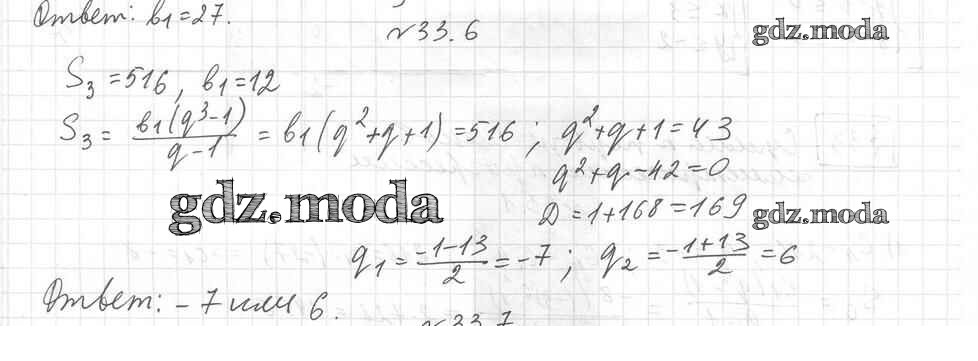 Ответ: b₁=27.
№33.6
gdz.moda
S₃=516, b₁=12
S₃ = b₁(q³-1)/(q-1) = b₁(q²+q+1)=516; q²+q+1=43
q²+q-42=0
gdz.moda
D=1+168=169
gdz.moda
q₁ = (-1-13)/2 = -7; q₂ = (-1+13)/2 = 6
Ответ: -7 или 6.
№33.7